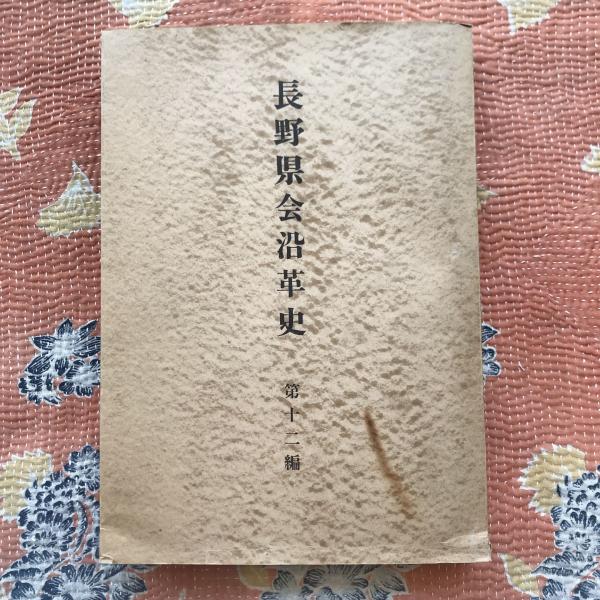 長野県会沿革史
第十二編